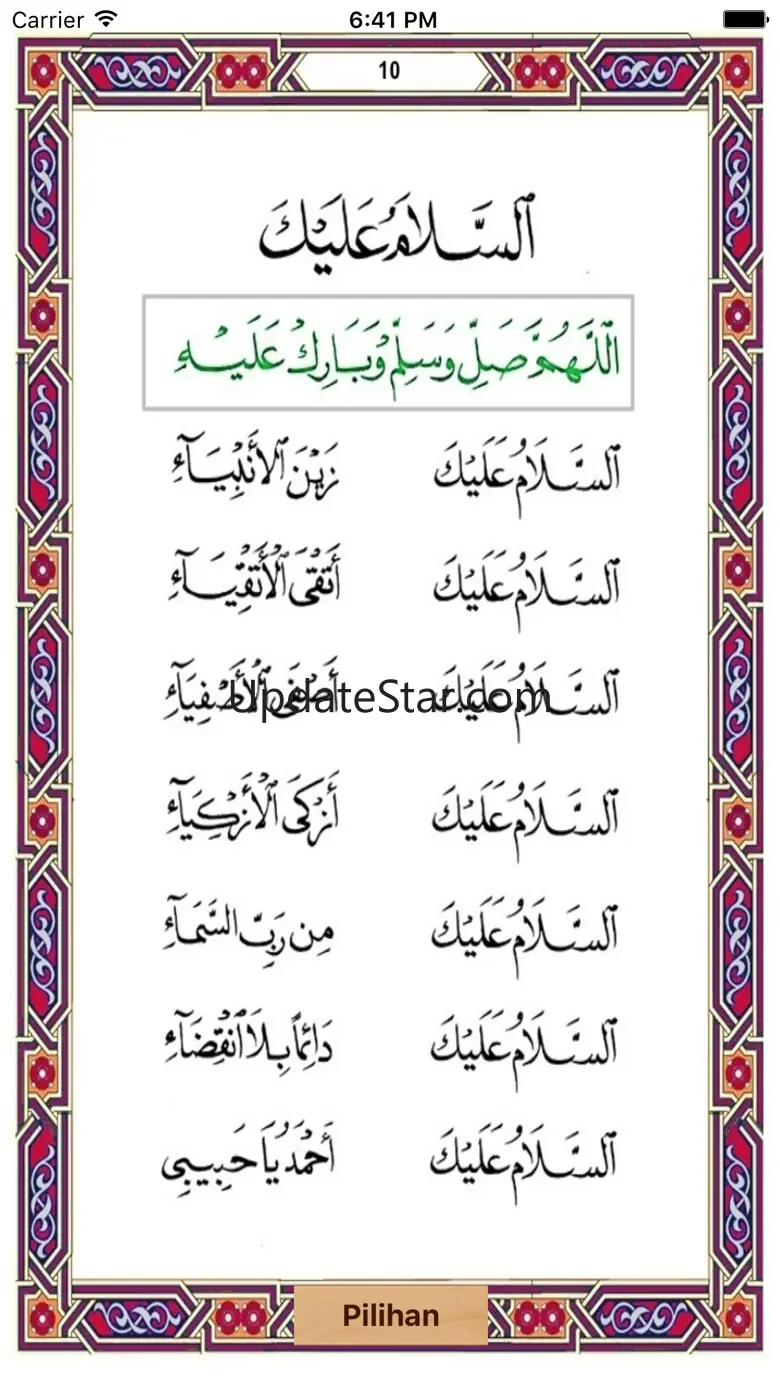 Carrier 6:41 PM
10
ٱلسَّلَامُ عَلَيْكَ
ٱللَّهُمَّ صَلِّ وَسَلِّمْ وَبَارِكْ عَلَيْهِ
ٱلسَّلَامُ عَلَيْكَ زَيْنَ ٱلْأَنْبِيَآءِ
ٱلسَّلَامُ عَلَيْكَ أَتْقَى ٱلْأَتْقِيَآءِ
ٱلسَّلَامُ عَلَيْكَ أَصْفَى ٱلْأَصْفِيَآءِ
UpdateStar.com
ٱلسَّلَامُ عَلَيْكَ أَزْكَى ٱلْأَزْكِيَآءِ
ٱلسَّلَامُ عَلَيْكَ مِن رَبِّ السَّمَآءِ
ٱلسَّلَامُ عَلَيْكَ دَائِمًا بِلَا ٱنْقِضَآءِ
ٱلسَّلَامُ عَلَيْكَ أَحْمَدُ يَا حَبِيبِي
Pilihan